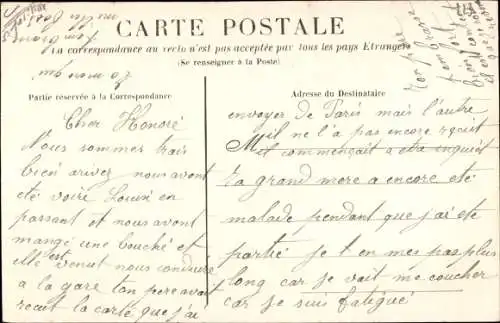 CARTE POSTALE
La correspondance au recto n'est pas acceptée par tous les pays Etrangers
(Se renseigner à la Poste)
Partie réservée à la Correspondance
Adresse du Destinataire
Cher Honoré
Nous sommes trais
bien arivez nous avont
eté voire Louise en
passant et nous avont
mangé une bouché et
elle est venut nous conduire
a la gare ton pere avait
recut la carte que j'ai
envoyer de Paris mais l'autre
il ne l'a pas encore recuit
il commençait a etre inquiet
ta grand mere a encore eté
malade pendant que j'ai eté
partie je t en mes pas plus
long car je vait me coucher
car je suis fatigué